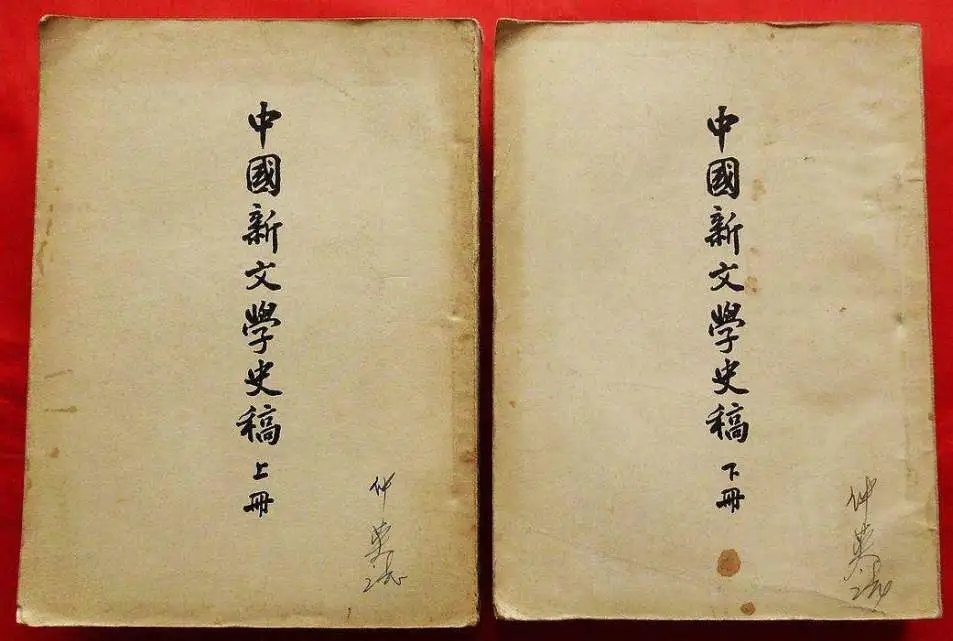 中國新文學史稿
上冊
仲英
中國新文學史稿
下冊
仲英